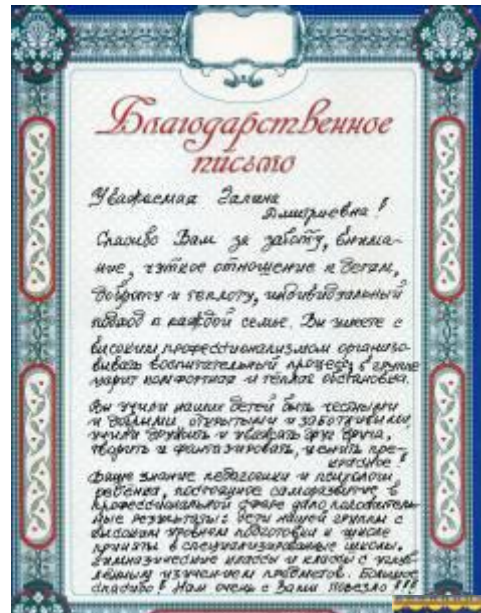 Благодарственное
письмо
Уважаемая Галина
Дмитриевна!
Спасибо Вам за заботу, внима-
ние, чуткое отношение к детям,
доброту и теплоту, индивидуальный
подход к каждой семье. Вы умеете с
высоким профессионализмом организо-
вывать воспитательный процесс, в группе
царит комфортная и теплая обстановка.
Вы учили наших детей быть честными
и добрыми, открытыми и заботливыми,
учили дружить и уважать друг друга,
творить и фантазировать, ценить пре-
красное!
Ваше знание педагогики и психологии
ребёнка, постоянное саморазвитие в
профессиональной сфере дало положитель-
ные результаты: дети нашей группы с
высоким уровнем подготовки к школе
приняты в специализированные школы,
гимназические классы и классы с углуб-
лённым изучением предметов. Большое
спасибо! Нам очень с Вами повезло!!!